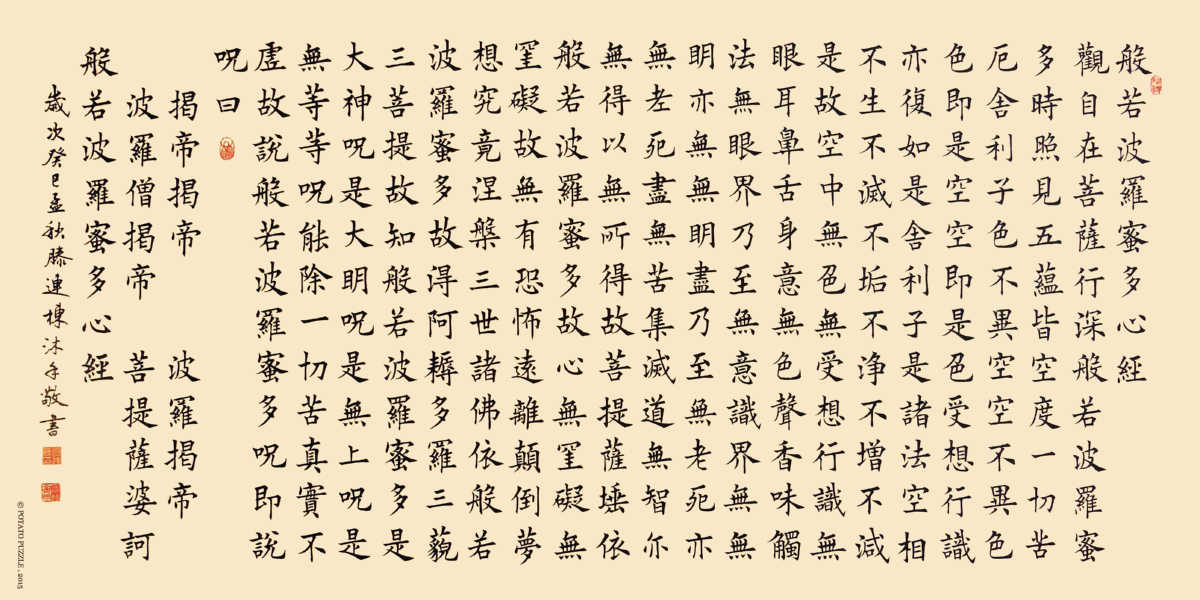 般若波羅蜜多心經
觀自在菩薩行深般若波羅蜜
多時照見五蘊皆空度一切苦
厄舍利子色不異空空不異色
色即是空空即是色受想行識
亦復如是舍利子是諸法空相
不生不滅不垢不淨不增不減
是故空中無色無受想行識無
眼耳鼻舌身意無色聲香味觸
法無眼界乃至無意識界無無
明亦無無明盡乃至無老死亦
無老死盡無苦集滅道無智亦
無得以無所得故菩提薩埵依
般若波羅蜜多故心無罣礙無
罣礙故無有恐怖遠離顛倒夢
想究竟涅槃三世諸佛依般若
波羅蜜多故得阿耨多羅三藐
三菩提故知般若波羅蜜多是
大神呪是大明呪是無上呪是
無等等呪能除一切苦真實不
虛故說般若波羅蜜多呪即說
呪曰
揭帝揭帝 波羅揭帝
波羅僧揭帝 菩提薩婆訶
般若波羅蜜多心經
歲次癸巳孟秋滕連棟沐手敬書
© POTATO PUZZLE , 2015